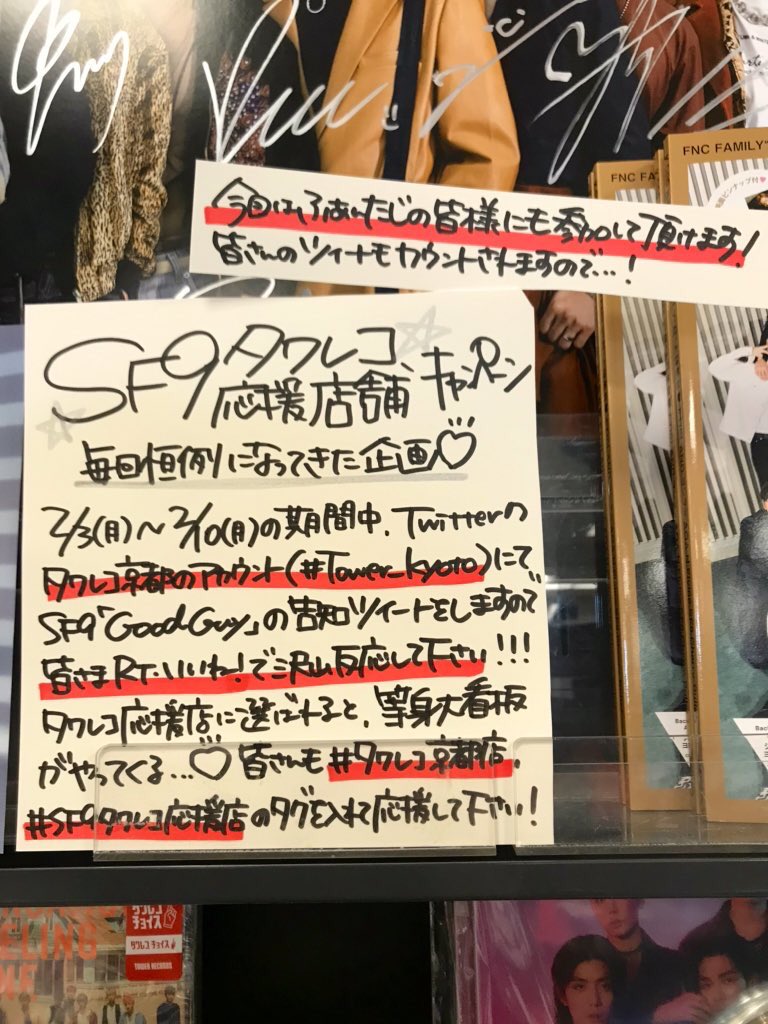 FNC FA
FNC FAMILY"
今回は、ふぁんたじの皆様にも参加して頂けます!
皆さんのツイートもカウントされますので…!
SF9 タワレコ応援店舗 キャンペーン
毎回恒例になってきた企画♡
2/3(月)〜2/10(月)の期間中、Twitterの
タワレコ京都のアカウント(#Tower_Kyoto)にて
SF9「Good Guy」の告知ツイートをしますので
皆さまRT・いいね!で沢山反応して下さい!!!
タワレコ応援店に選ばれると、等身大看板
がやってくる…♡ 皆さんも#タワレコ京都店、
#SF9タワレコ応援店のタグを入れて応援して下さい!
タワレコ
チョイス
タワレコ
チョイス
TOWER RECORDS
ELING